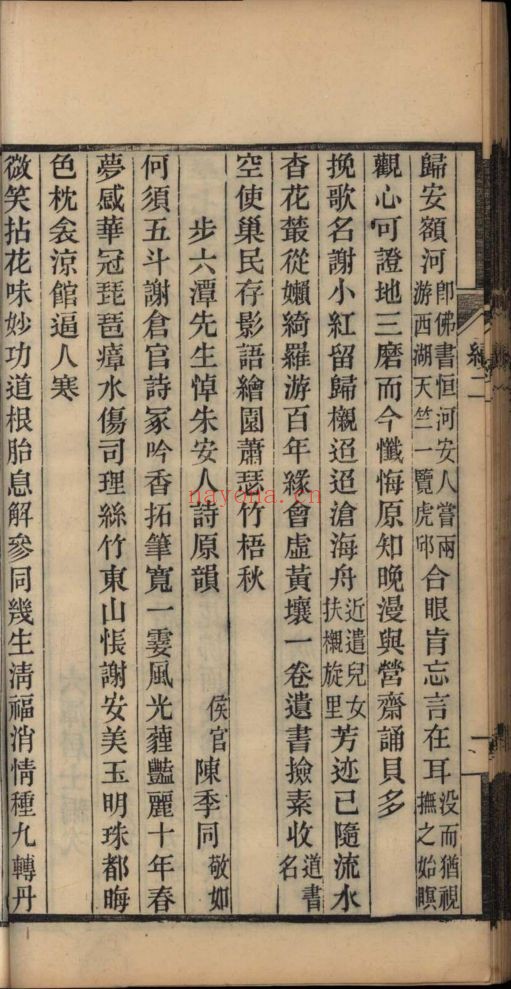 歸安額河即佛書恒河安人嘗兩游西湖天竺一覽虎邱合眼肯忘言在耳没而猶視撫之始瞑
觀心可證地三磨而今懺悔原知晚漫與營齋誦貝多
挽歌名謝小紅留歸櫬迢迢滄海舟近遣兒女扶櫬旋里芳迹已隨流水
杳花叢從嬾綺羅游百年緣會虛黃壤一卷遺書撿素收道書名
空使巢民存影語繪園蕭瑟竹梧秋
步六潭先生悼朱安人詩原韻
侯官陳季同敬如
何須五斗謝倉官詩冢吟香拓筆寬一霎風光蕹豔麗十年春
夢感華冠琵琶瘴水傷司理絲竹東山悵謝安美玉明珠都晦
色枕衾涼館逼人寒
微笑拈花味妙功道根胎息解參同幾生淸福消情種九轉丹
編二
nayona.cn